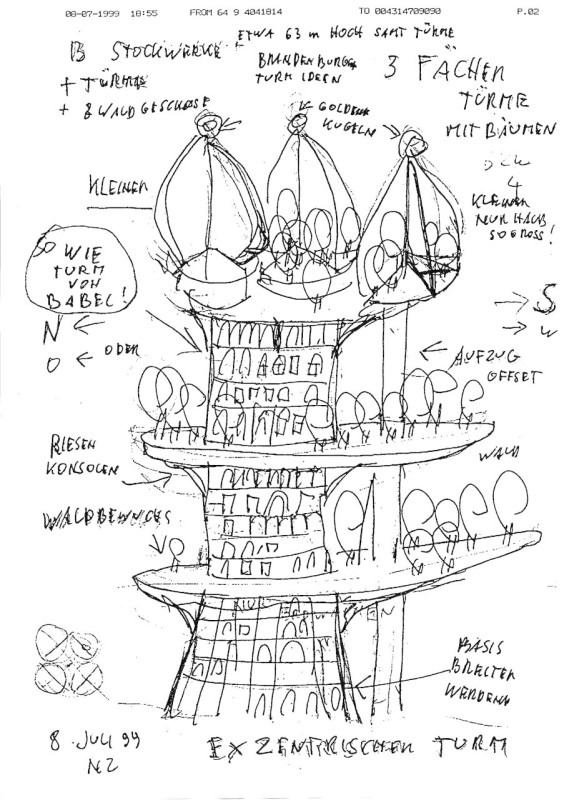 08-07-1999 18:55 FROM 64 9 4041814 TO 004314709090 P.02
ETWA 63 m HOCH SAMT TÜRME
13 STOCKWERKE +
+ TÜRME
+ 8 WALDGESCHOSSE
BRANDENBURG
TURM IDEEN
3 FÄCHER
TÜRME
MIT BÄUMEN
GOLDENE
KUGELN
KLEINER
4
KLEINER
NUR HALB
SO GROSS!
SO WIE
TURM
VON
BABEL!
N
O
ODER
S
W
AUFZUG
OFFSET
RIESEN
KONSOLEN
WALD
BASIS
BREITER
WERDEND
8. JULI 99
NZ
EXZENTRISCHER TURM